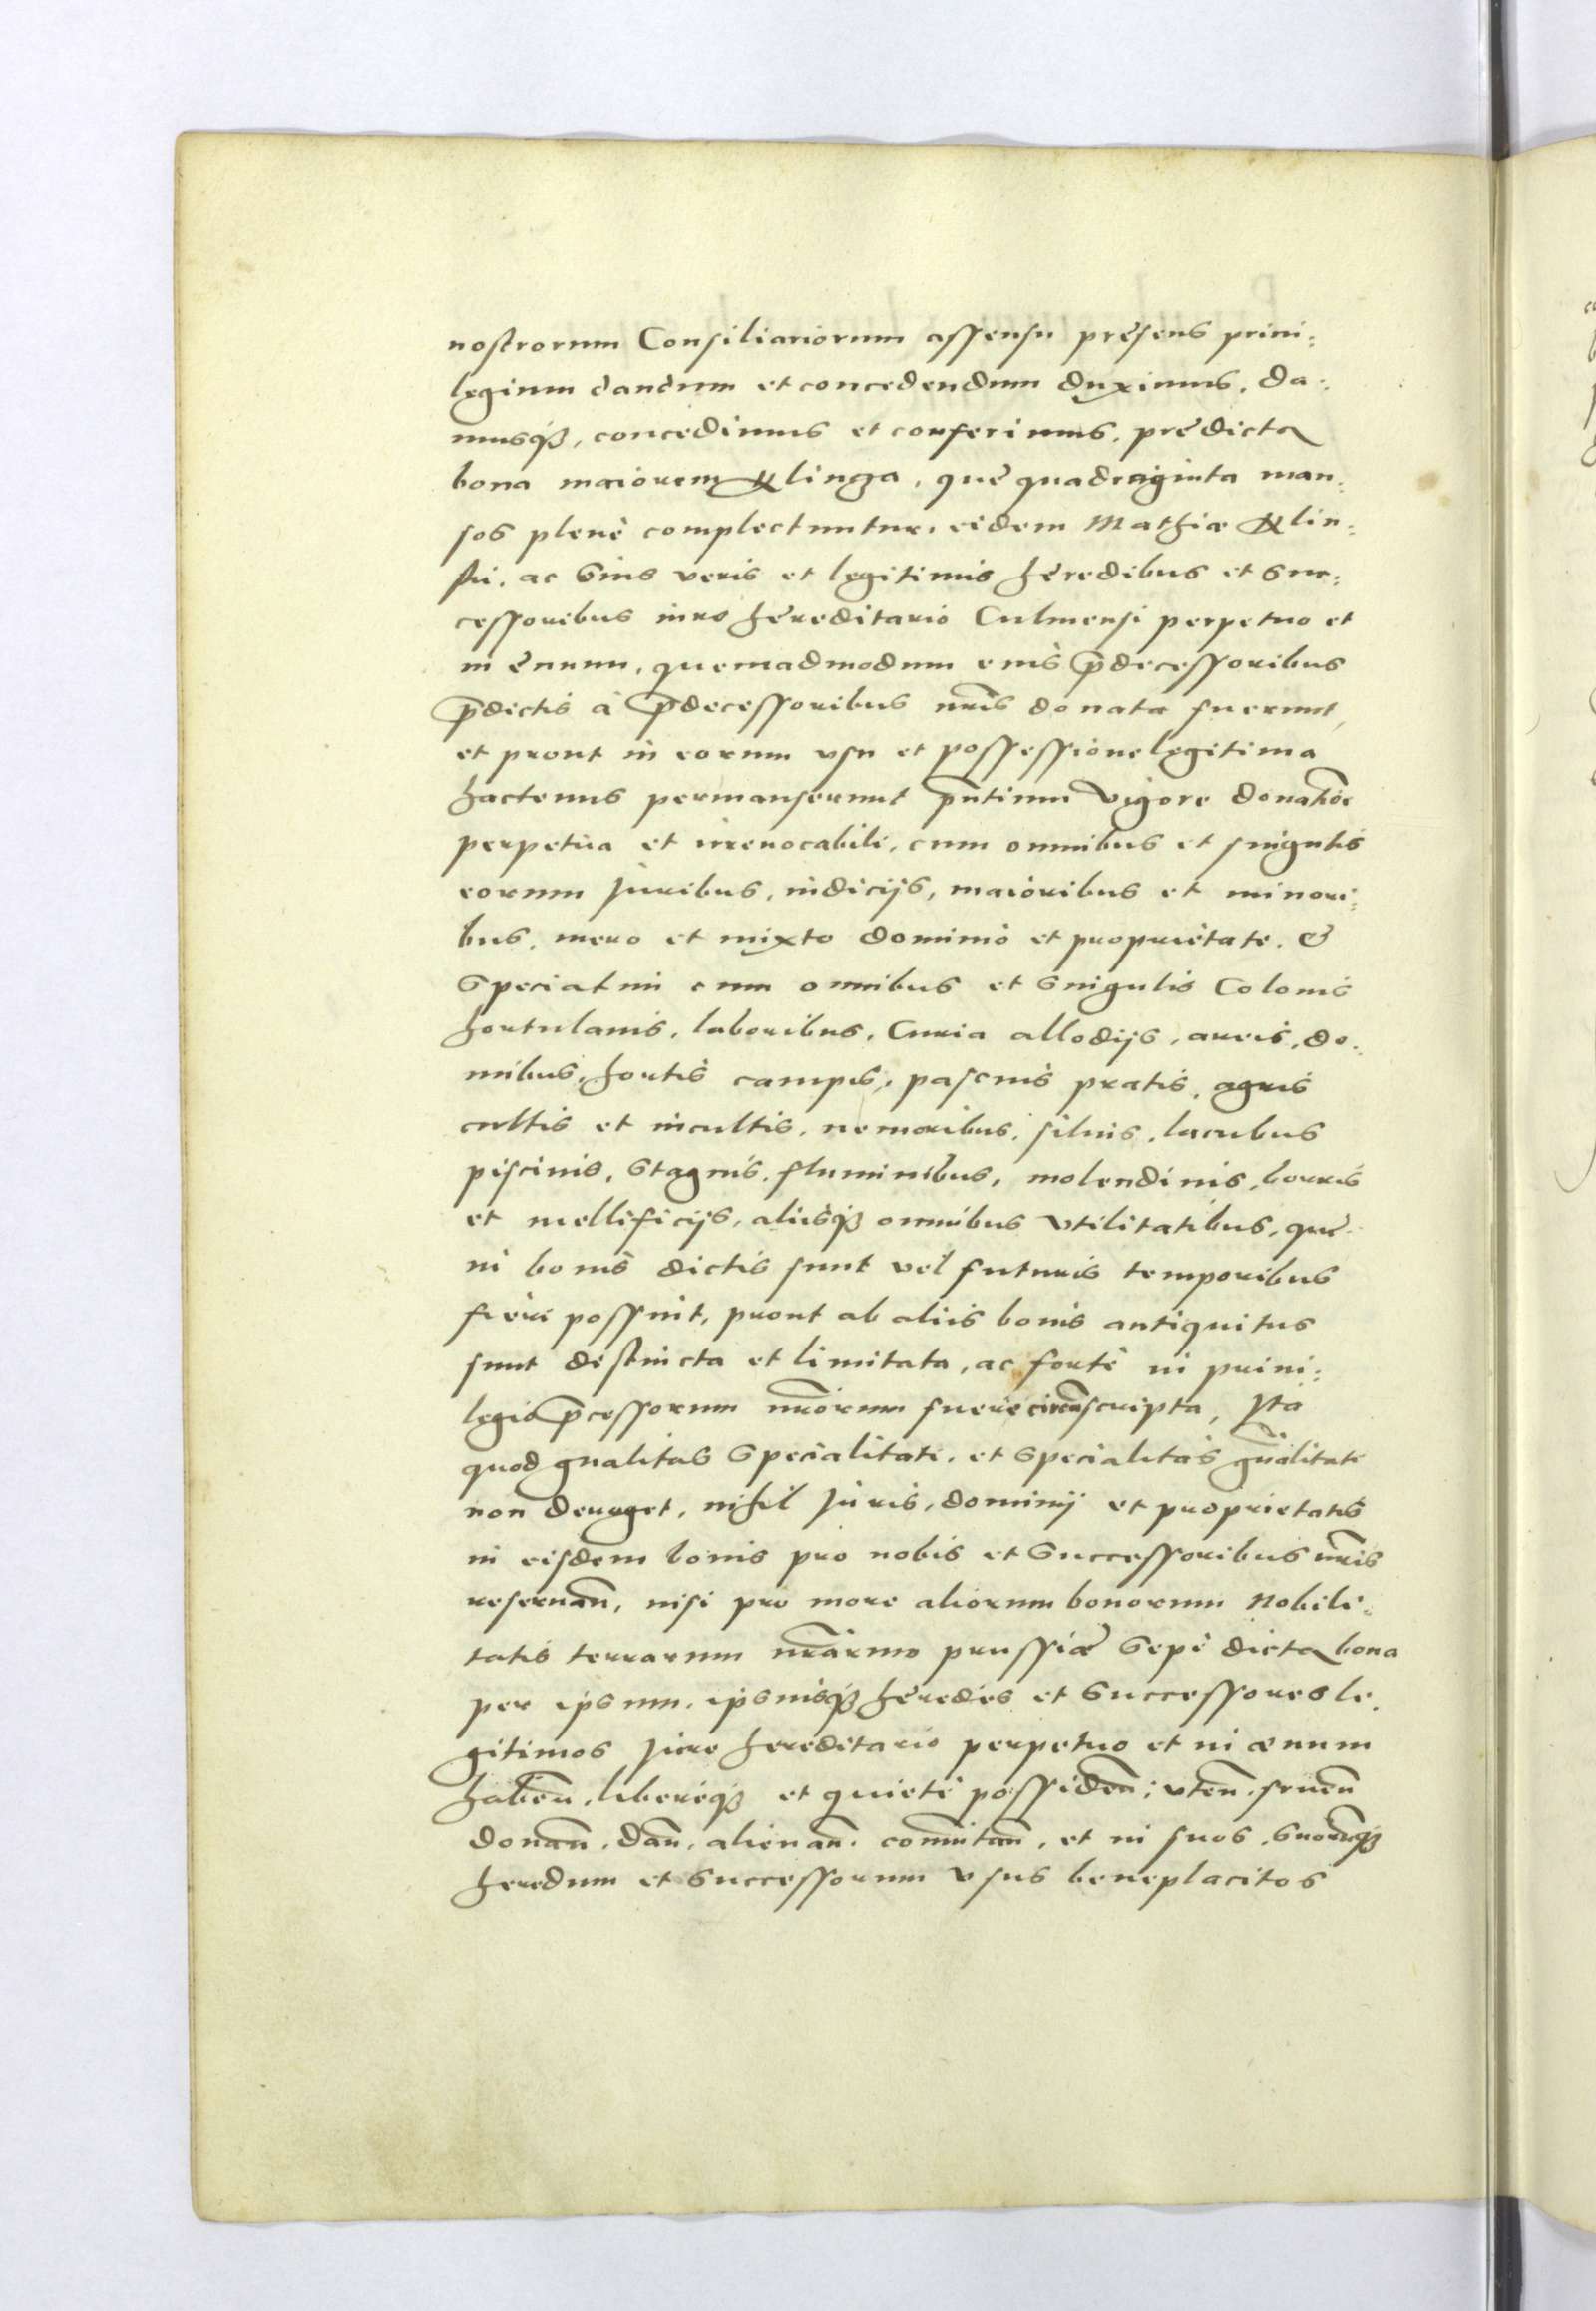 nostrorum Consiliariorum assensu presens priui:
legium dandum et concedendum duximus, da:
musqꝫ, concedimus et conferimus, predicta
bona maiorem Klinga, que quadraginta man:
sos plene complectuntur, eidem Mathiæ Klin:
ski, ac Suis veris et legitimis heredibus et Suc:
cessoribus iure hereditario Culmensi perpetuo et
in euum, quemadmodum eius p̄decessoribus
p̄dictis à p̄decessoribus nr̄is donata fuerunt,
et prout in eorum vsu et possessione legitima
hactenus permanserunt pn̄tium vigore donatiōe
perpetua et irreuocabili, cum omnibus et singulis
eorum Juribus, iudicijs, maioribus et minori:
bus, mero et mixto dominio et proprietate. &
Speciatim cum omnibus et Singulis Colonis
hortulanis, laboribus, Curia allodijs, areis, do:
mibus, hortis campis, pascuis pratis, agris
cultis et incultis, nemoribus, siluis, lacubus
piscinis, Stagnis, fluminibus, molendinis, borris
et mellificijs, alijsqꝫ omnibus vtilitatibus, que
in bonis dictis sunt vel futuris temporibus
fieri possint, prout ab aliis bonis antiquitus
sunt distincta et limitata, ac forte in priui:
legio p̄cessorum nr̄orum fuere circūscripta, Ita
quod gn̄alitas Specialitati, et Specialitas gn̄alitati
non deroget, nihil Juris, dominij et proprietatis
in eisdem bonis pro nobis et Successoribus nr̄is
reseruan̄, nisi pro more aliorum bonorum Nobili:
tatis terrarum nr̄arum prussiæ Sepe dicta bona
per ipsum, ipsiusqꝫ heredes et Successores le:
gitimos Jure hereditario perpetuo et in æuum
haben̄, libereqꝫ et quiete possiden̄, vten̄, fruen̄
donan̄, dan̄, alienan̄, com̄utan̄, et in suos, Suorūqꝫ
heredum et Successorum vsus beneplacitos